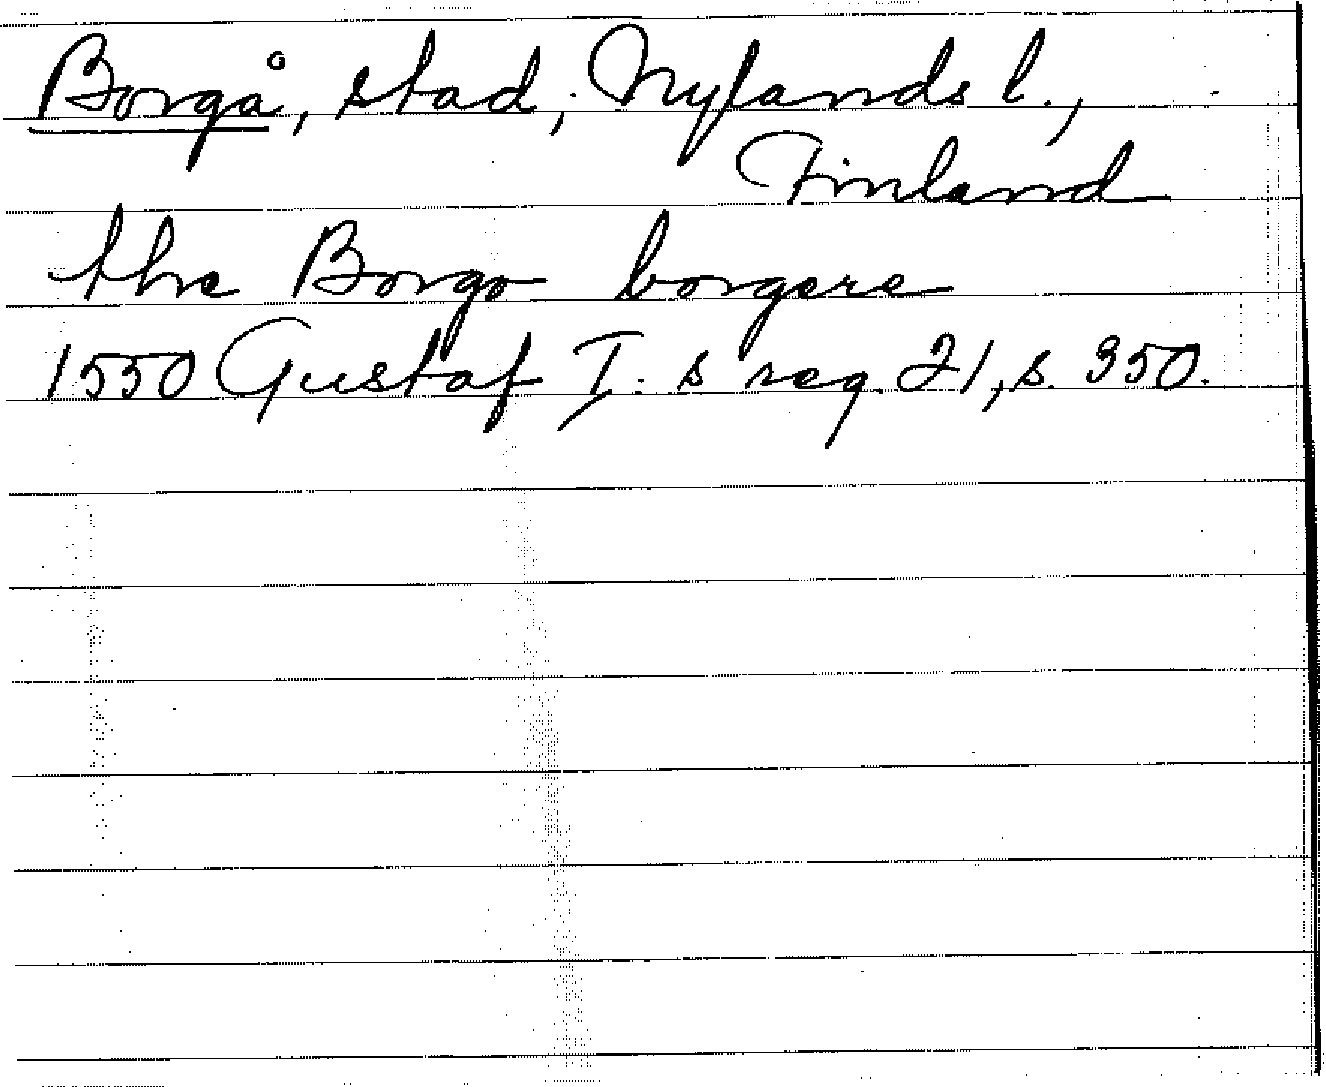 Borgå, stad, Nylands l.,
Finland
the Borgo borgere
1550 Gustaf I:s reg. 21, s. 350.